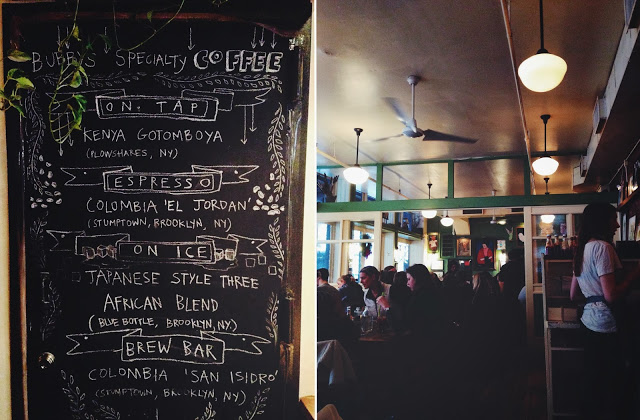 BUBBY'S SPECIALTY COFFEE
ON TAP
KENYA GOTOMBOYA
(PLOWSHARES, NY)
ESPRESSO
COLOMBIA 'EL JORDAN'
(STUMPTOWN, BROOKLYN, NY)
ON ICE
JAPANESE STYLE THREE
AFRICAN BLEND
(BLUE BOTTLE, BROOKLYN, NY.)
BREW BAR
COLOMBIA 'SAN ISIDRO'
(STUMPTOWN, BROOKLYN, NY)